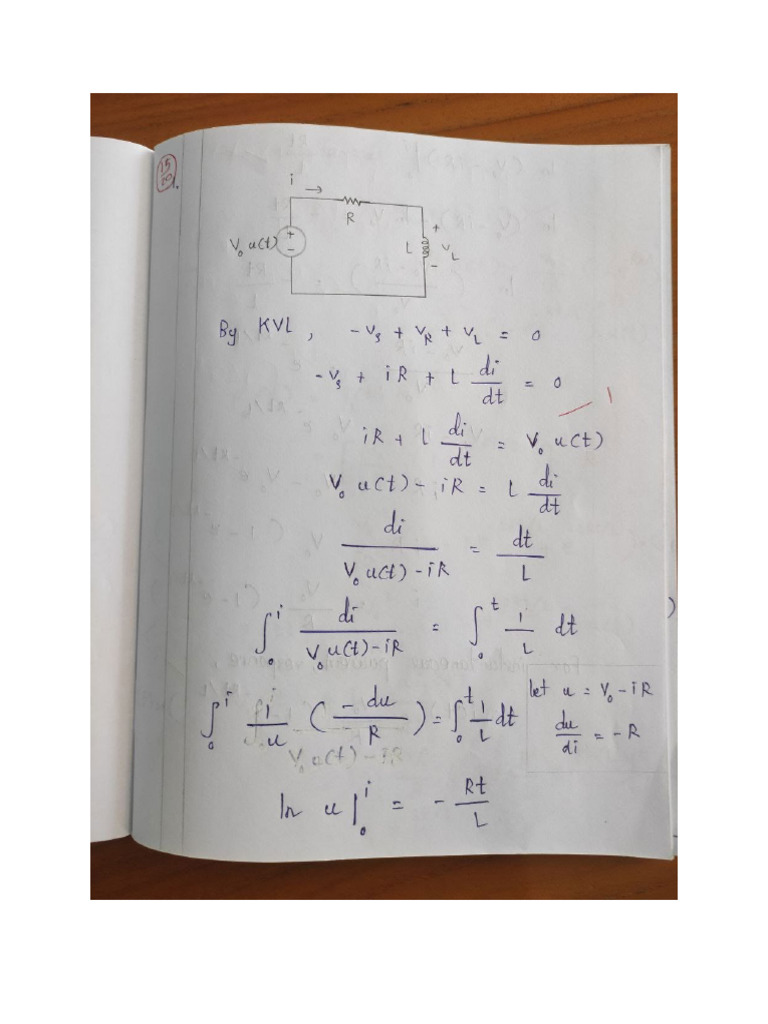 15
20
1.
i →
R
V₀ u(t)
+
−
L
+
v_L
−
By KVL, -v_s + v_R + v_L = 0
-v_s + iR + L di/dt = 0
1
iR + L di/dt = V₀ u(t)
V₀ u(t) - iR = L di/dt
di/(V₀ u(t) - iR) = dt/L
∫₀ⁱ di/(V₀ u(t) - iR) = ∫₀ᵗ 1/L dt
let u = V₀ - iR
du/di = -R
∫₀ⁱ 1/u (-du/R) = ∫₀ᵗ 1/L dt
ln u |₀ⁱ = - Rt/L